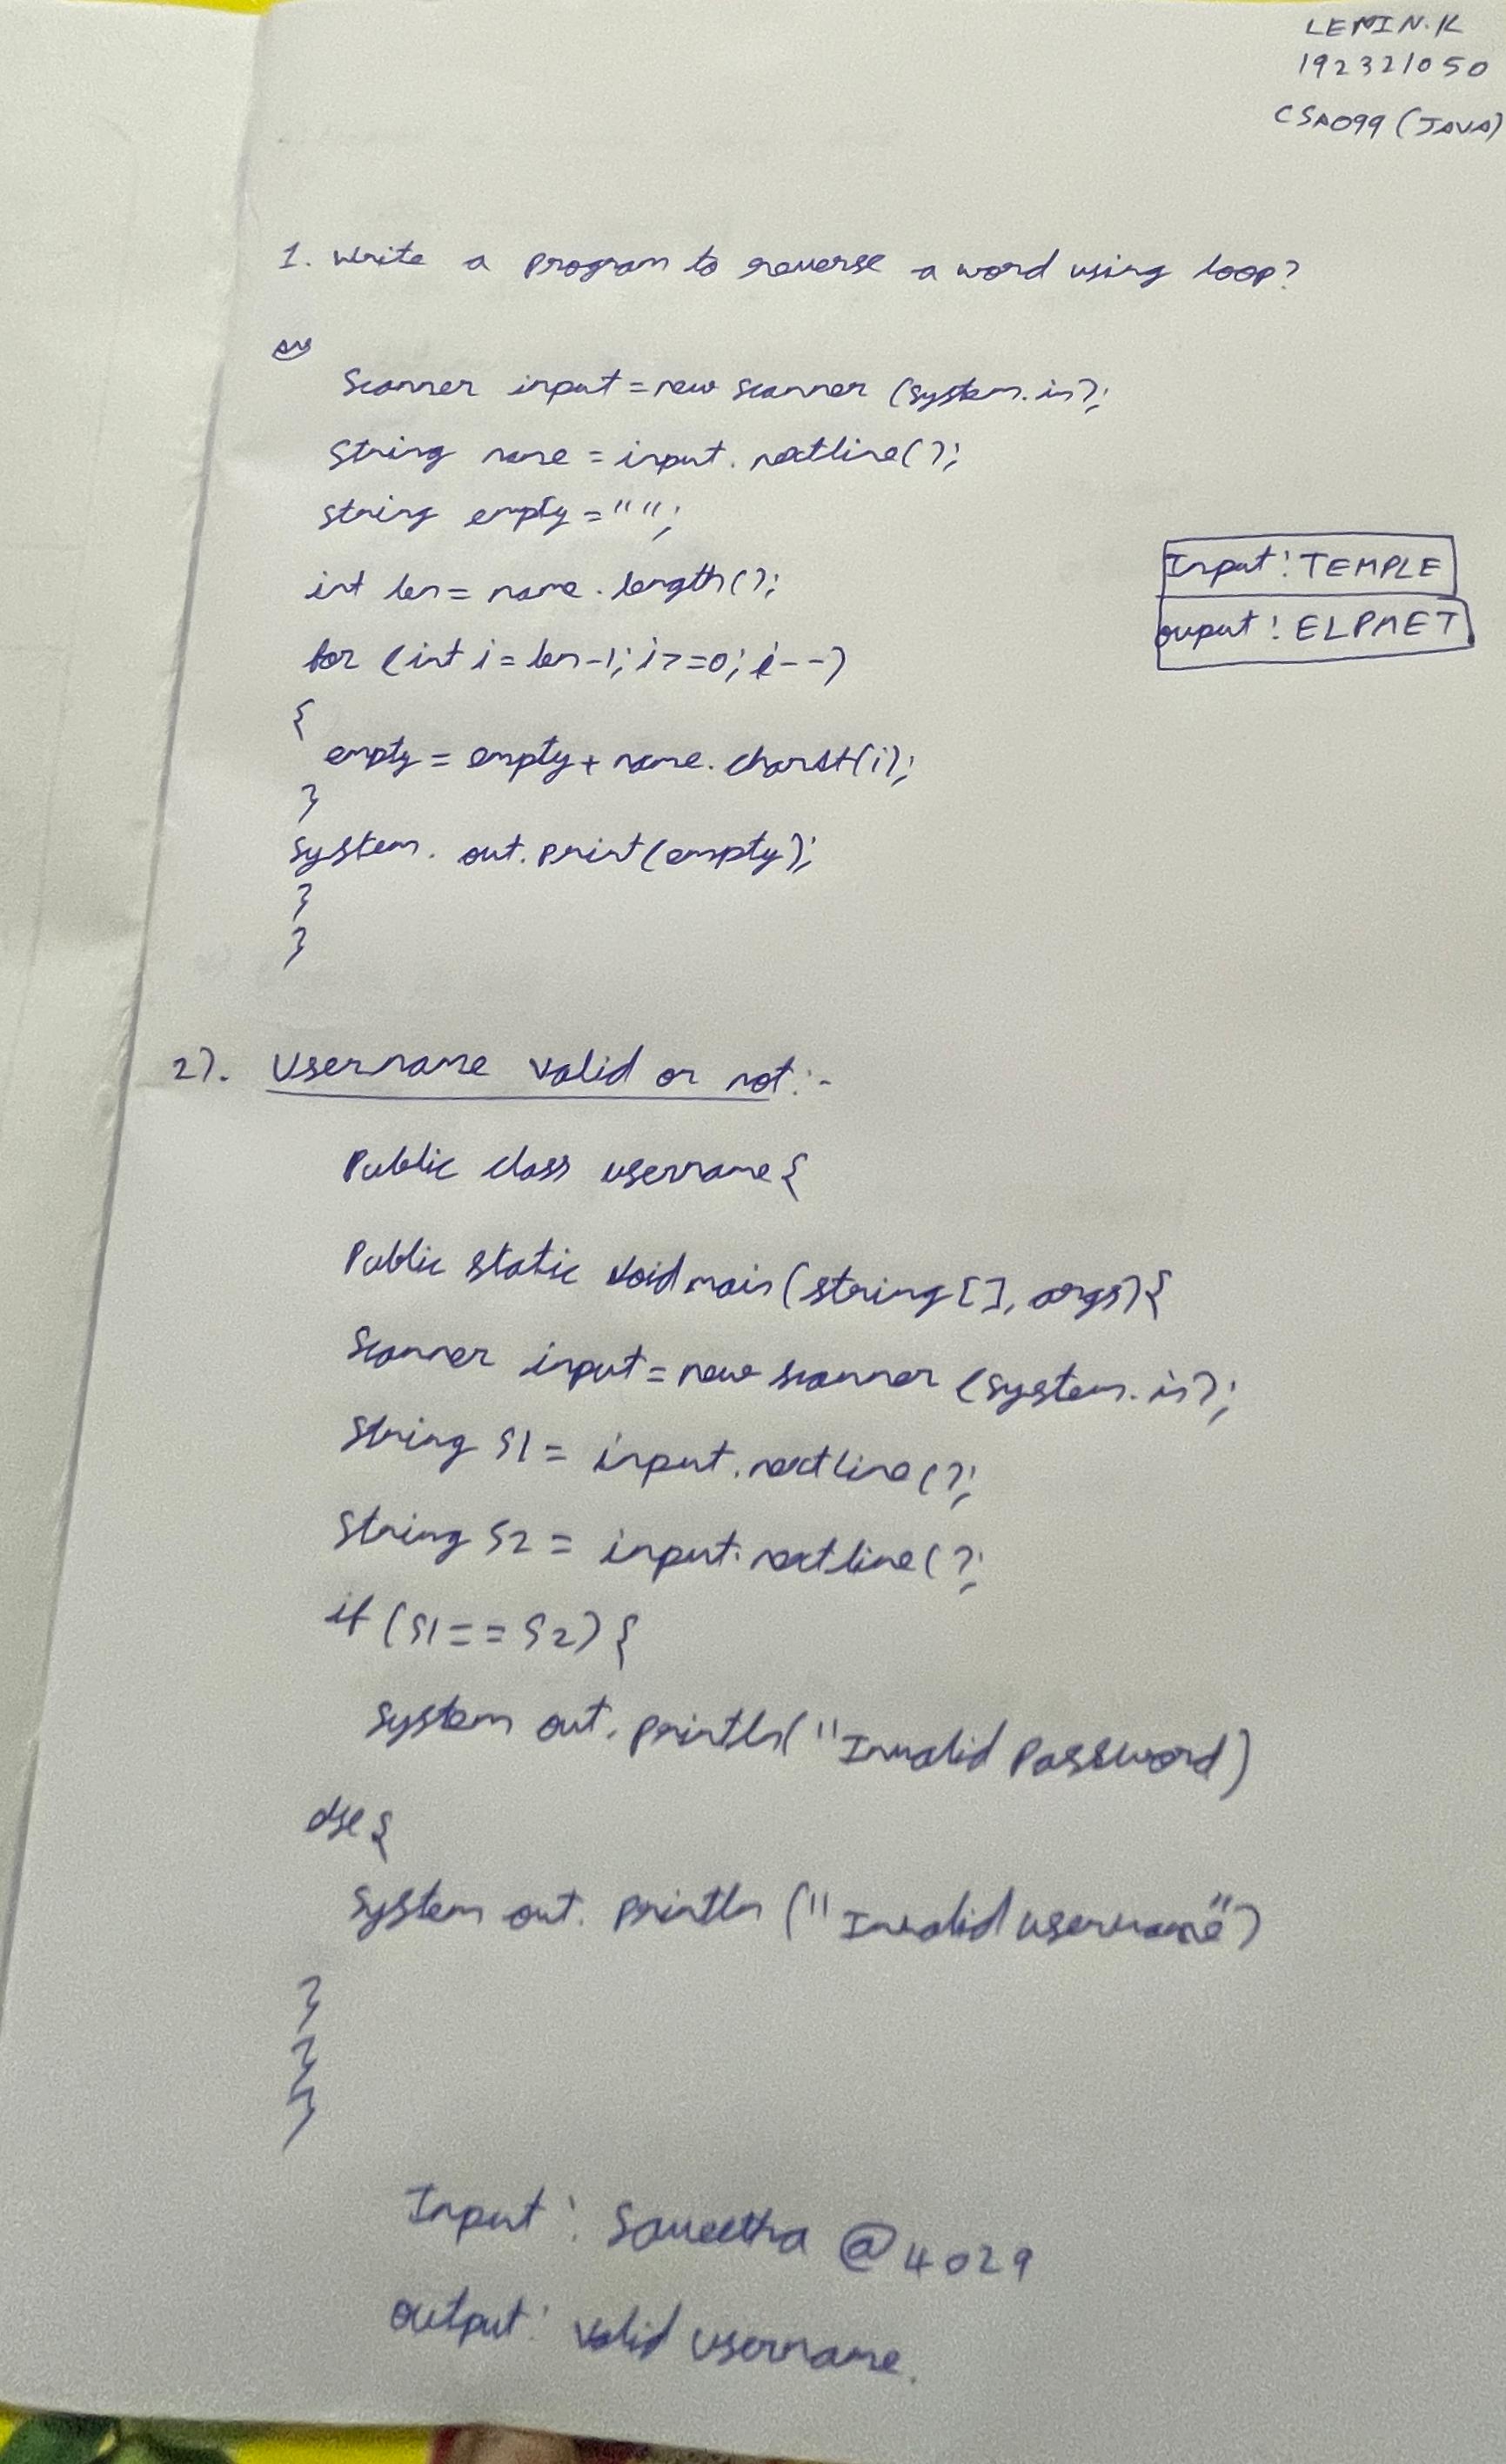 LENIN.K
192321050
CSA099 (JAVA)
1. Write a program to reverse a word using loop?
Ans
Scanner input = new Scanner (System.in);
String name = input.nextline();
String empty = "";
int len = name.length();
for (int i = len-1; i>=0; i--)
{
empty = empty + name.charAt(i);
}
System.out.print(empty);
}
}
Input: TEMPLE
ouput: ELPMET
2). Username valid or not:-
Public class username{
Public static void main(string[], args){
Scanner input = new scanner (system.in);
String S1 = input.nextline();
String S2 = input.nextline();
if (S1 == S2) {
System out. println("Invalid Password)
else {
System out. println ("Invalid username")
}
}
}
Input: Saveetha @4029
output: valid username.